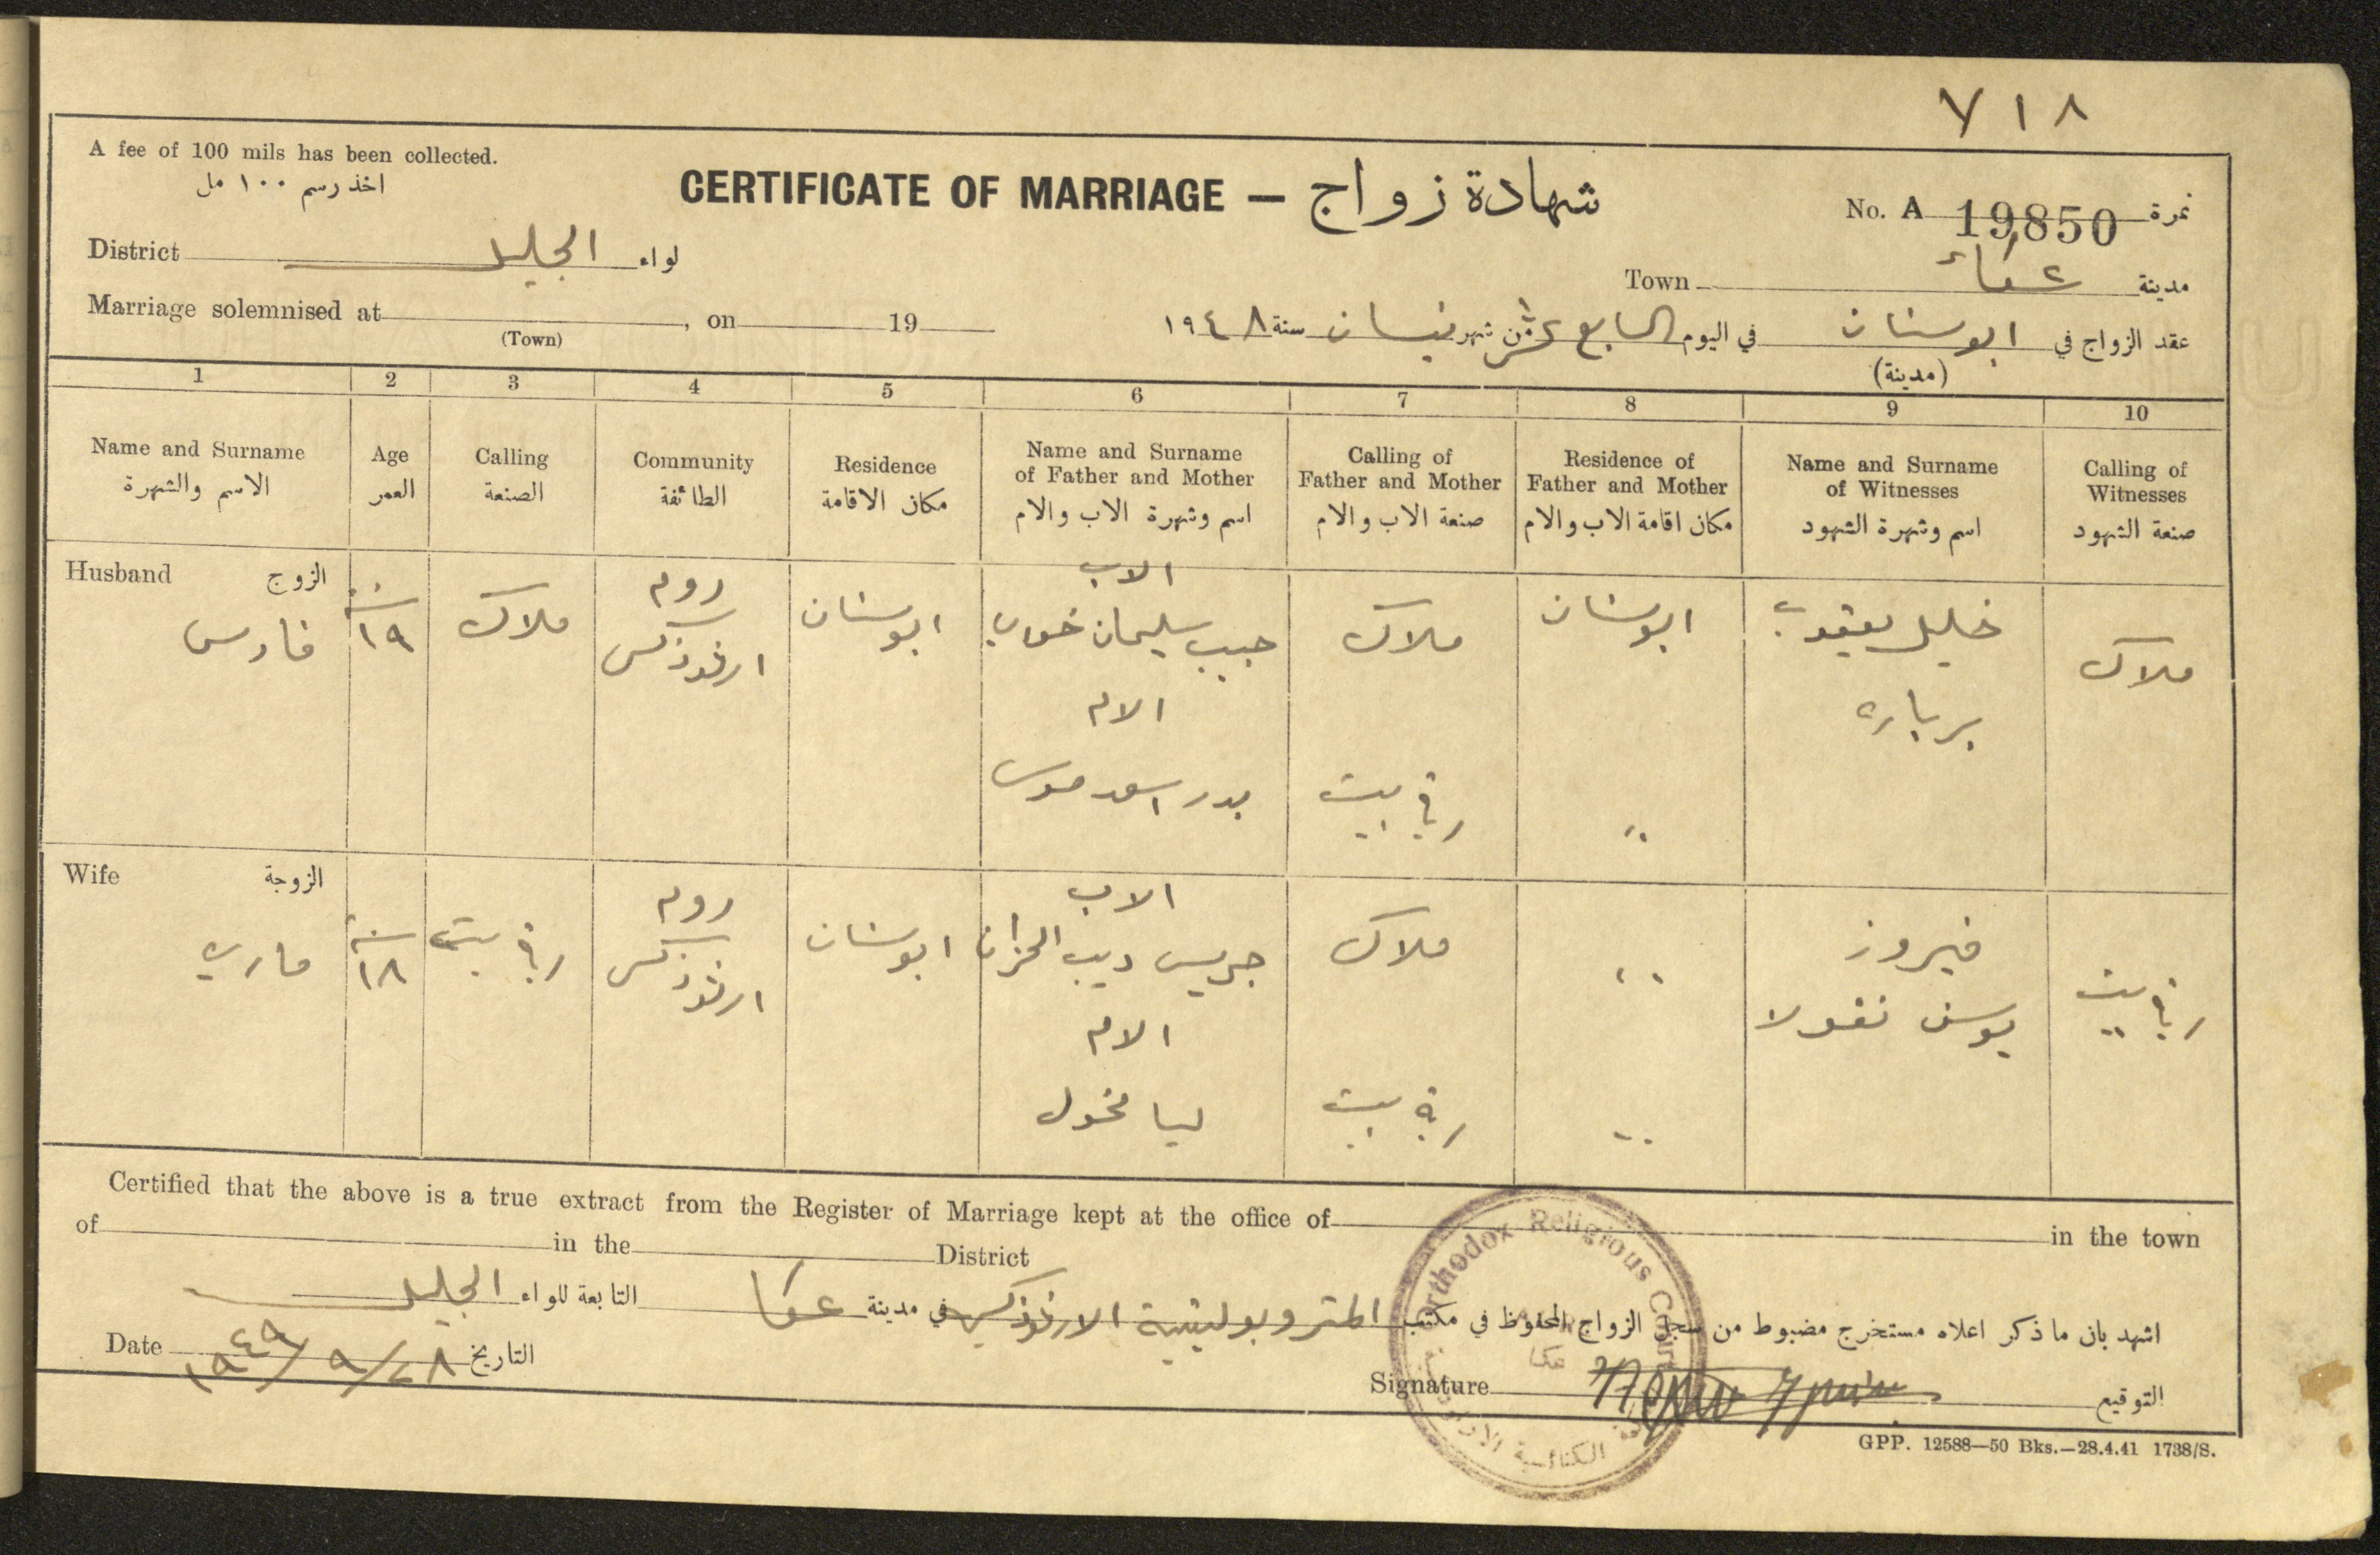 ٧١٨
A fee of 100 mils has been collected.
اخذ رسم ١٠٠ مل
CERTIFICATE OF MARRIAGE — شهادة زواج
No. A 19850 نمرة
District الجليل لواء
Town عكاء مدينة
Marriage solemnised at , on 19
(Town)
عقد الزواج في ابوسنان في اليوم السابع عشر من شهر نيسان سنة ١٩٤٨
(مدينة)
1 2 3 4 5 6 7 8 9 10
Name and Surname
الاسم والشهرة
Age
العمر
Calling
الصنعة
Community
الطائفة
Residence
مكان الاقامة
Name and Surname
of Father and Mother
اسم وشهرة الاب والام
Calling of
Father and Mother
صنعة الاب والام
Residence of
Father and Mother
مكان اقامة الاب والام
Name and Surname
of Witnesses
اسم وشهرة الشهود
Calling of
Witnesses
صنعة الشهود
Husband الزوج
فارس
سنة
١٩
ملاك
روم
ارثوذكس
ابوسنان
الاب
حبيب سليمان خوري
الام
بدر اسعد موسى
ملاك
ربة بيت
ابوسنان
"
خليل يعقوب
بربارة
ملاك
Wife الزوجة
ماري
سنة
١٨
ربة بيت
روم
ارثوذكس
ابوسنان
الاب
جريس ديب
الام
ليا مخول
ملاك
ربة بيت
"
"
فيروز
يوسف نقولا
ربة بيت
Certified that the above is a true extract from the Register of Marriage kept at the office of in the town
of in the District
اشهد بان ما ذكر اعلاه مستخرج مضبوط من سجل الزواج المحفوظ في مكتب المتروبوليتية الارثوذكسية في مدينة عكا التابعة للواء الجليل
Date ١٩٤٩/٩/٢٨ التاريخ
Signature التوقيع
Orthodox Religious Court
عكا
الكنائسية
GPP. 12588—50 Bks.—28.4.41 1738/S.